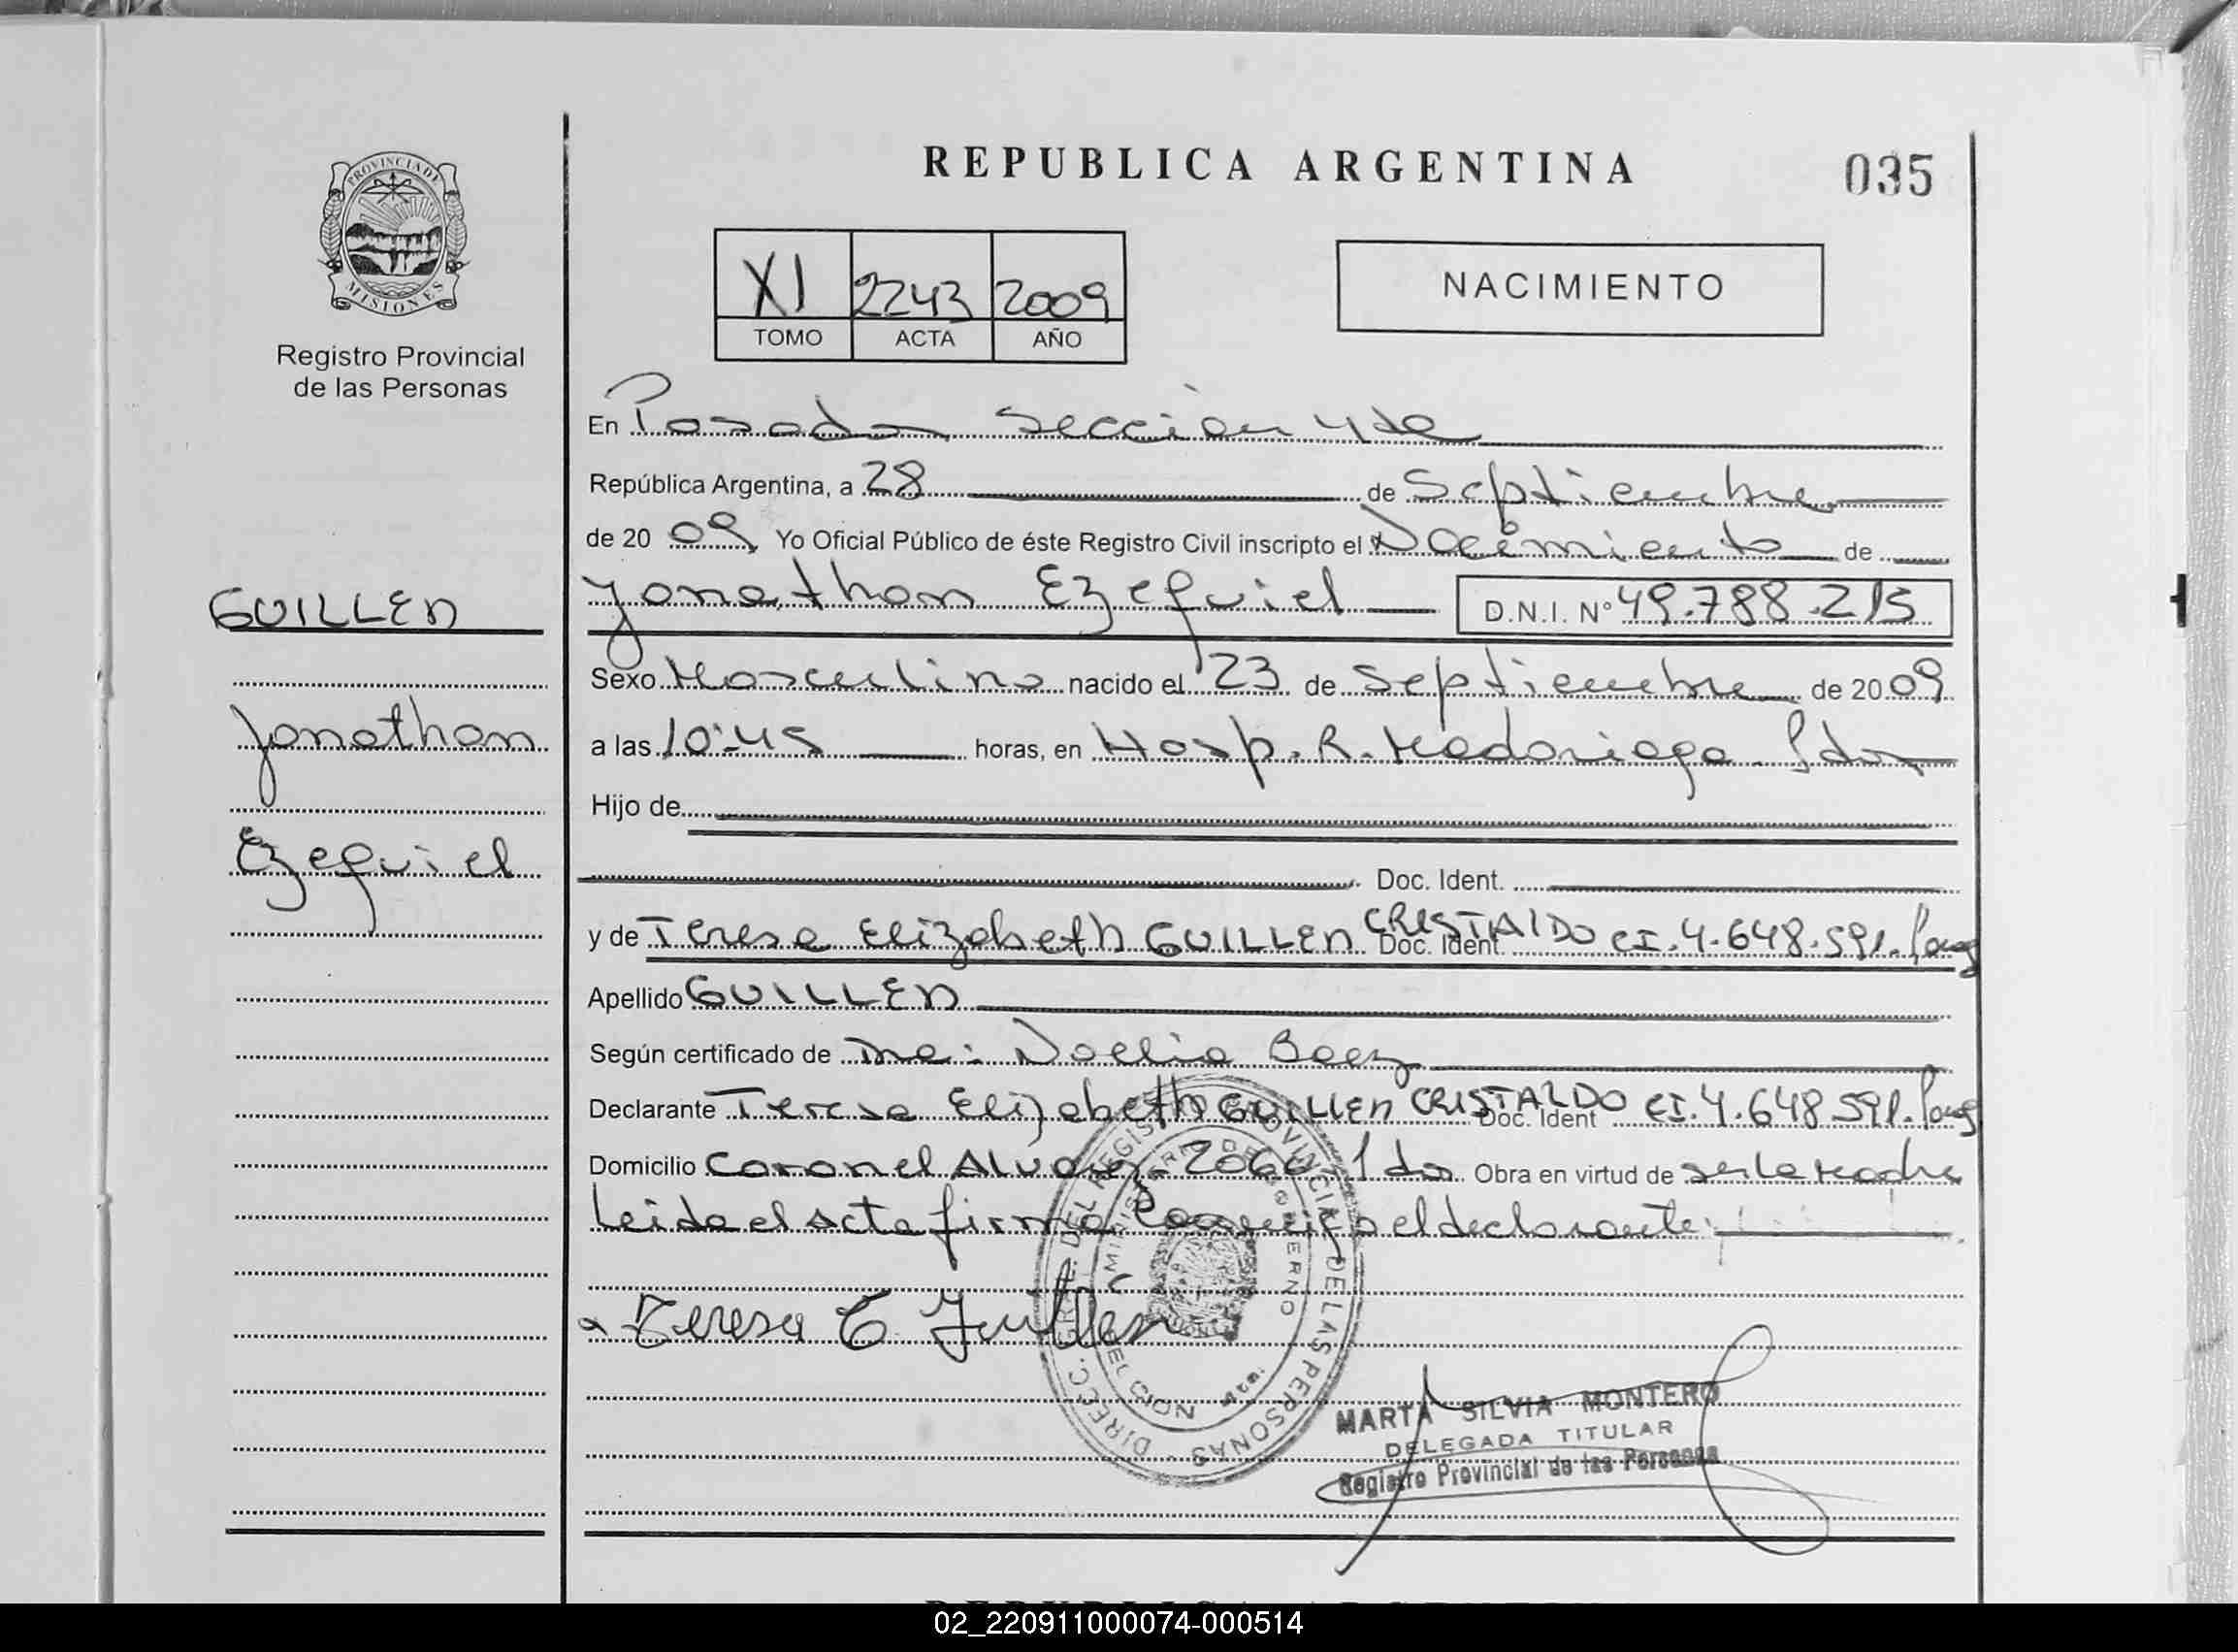 REPUBLICA ARGENTINA
035
PROVINCIA DE
MISIONES
Registro Provincial
de las Personas
XI 2243 2009
TOMO ACTA AÑO
NACIMIENTO
En Posadas sección 4ta
República Argentina, a 28 de Septiembre
de 2009 Yo Oficial Público de éste Registro Civil inscripto el Nacimiento de
GUILLEN
Jonathan
Ezequiel
Jonathan Ezequiel D.N.I. Nº 49.788.215
Sexo Masculino nacido el 23 de Septiembre de 2009
a las 10:45 horas, en Hosp. R. Madariaga. Pdas
Hijo de
Doc. Ident.
y de Teresa Elizabeth GUILLEN CRISTALDO Doc. Ident. CI. 4.648.591.
Apellido GUILLEN
Según certificado de Noelia Baez
Declarante Teresa Elizabeth GUILLEN CRISTALDO Doc. Ident CI. 4.648.591.
Domicilio Coronel Alvarez 2060 Pdas Obra en virtud de ser la madre
Leida el acta firma conmigo el declarante
Teresa E. Guillen
DIRECC. GRAL. DEL REGISTRO PROVINCIAL DE LAS PERSONAS
MINISTERIO DE GOBIERNO
MARTA SILVIA MONTERO
DELEGADA TITULAR
Registro Provincial de las Personas
02_220911000074-000514